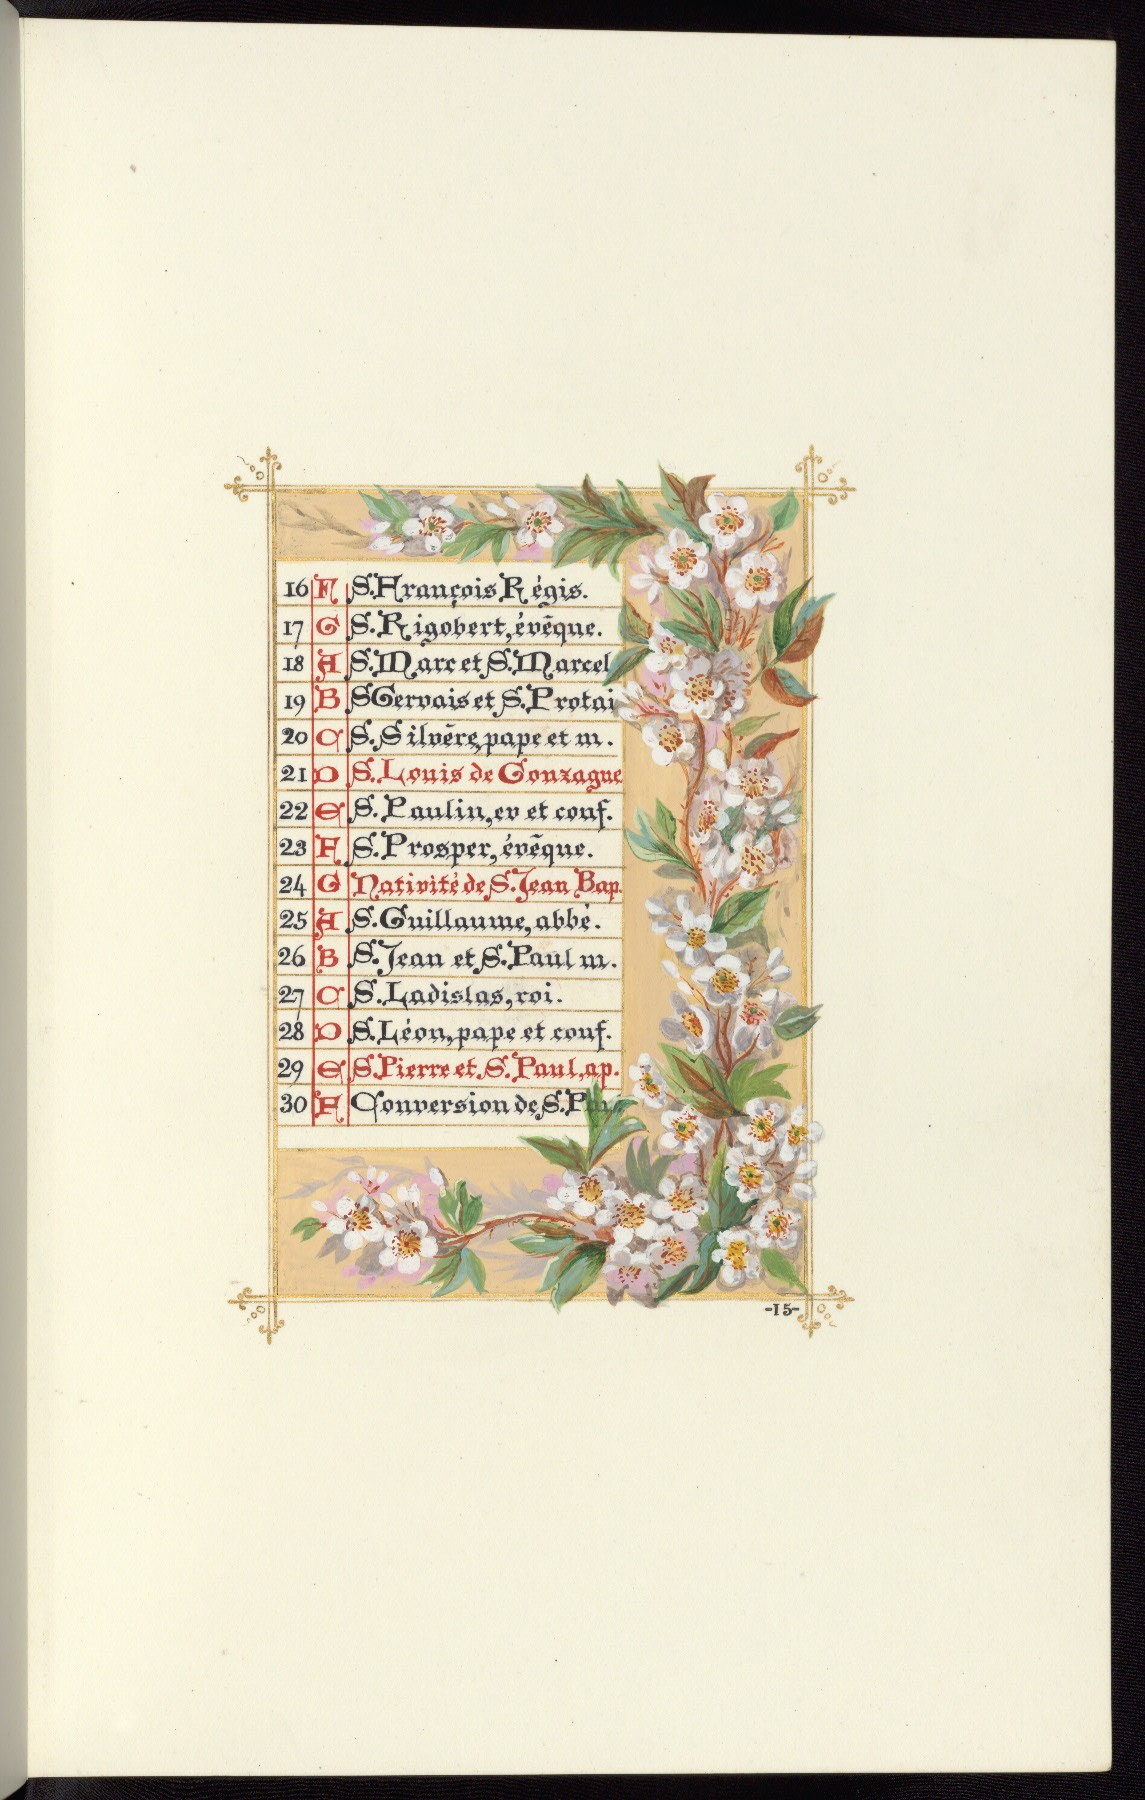 16 F S. François Régis.
17 G S. Rigobert, évêque.
18 A S. Marc et S. Marcel
19 B S Gervais et S. Protai
20 C S. Silvère, pape et m.
21 D S. Louis de Gonzague
22 E S. Paulin, ev et conf.
23 F S. Prosper, évêque.
24 G Nativité de S. Jean Bap.
25 A S. Guillaume, abbé.
26 B S. Jean et S. Paul m.
27 C S. Ladislas, roi.
28 D S. Léon, pape et conf.
29 E S. Pierre et S. Paul, ap.
30 F Conversion de S.
-15-